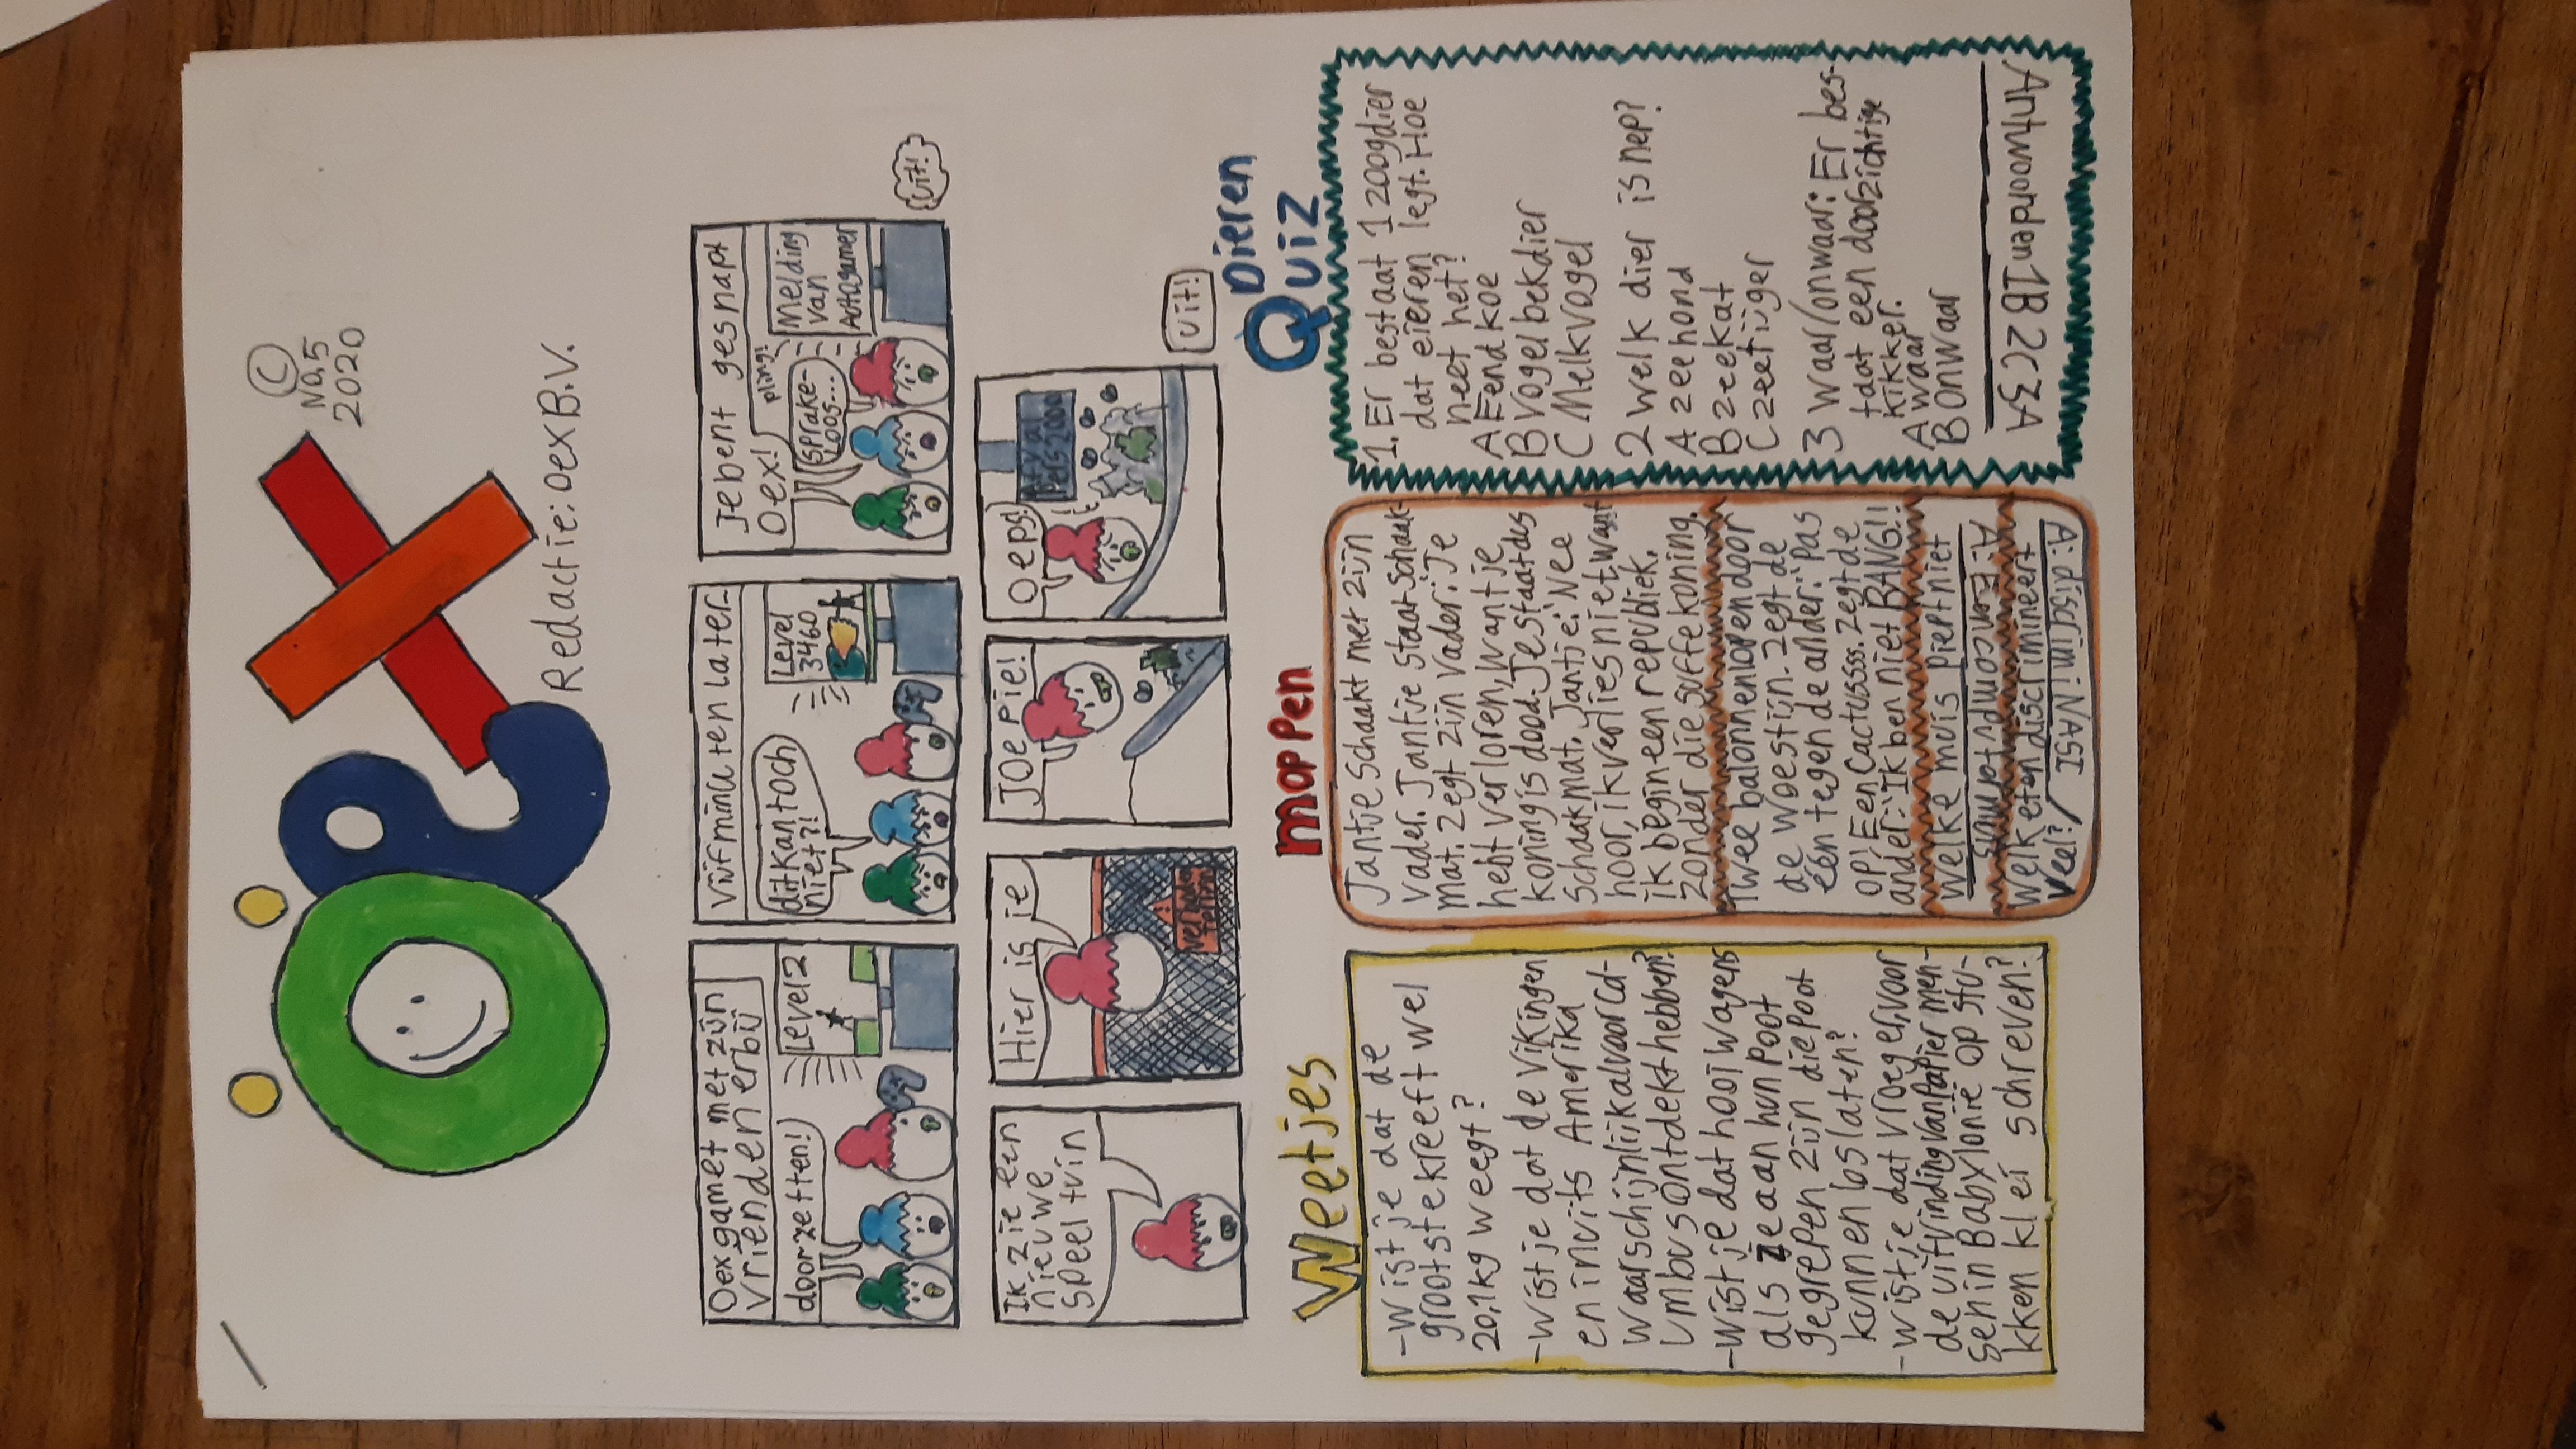 Öex
©
NO.5
2020
Redactie: Oex B.V.
Oex gamet met zijn
vrienden erbij
doorzetten!
Level 2
Vijf minuten later
dit kan toch
niet?!
Level
3460
Je bent gesnapt
Oex!
pling!
Sprake-
loos...
Melding
van
Autogamer
uit!
Ik zie een
nieuwe
speeltuin
Hier is ie
verboden
terrein
JOepie!
Oeps!
Afval
Pers2000
uit!
Weetjes
-Wist je dat de
grootste kreeft wel
20,1kg weegt?
-Wist je dat de Vikingen
en inuits Amerika
waarschijnlijk al voor Col-
umbus ontdekt hebben?
-Wist je dat hooiwagens
als ze aan hun poot
gegrepen zijn die poot
kunnen loslaten?
-Wist je dat vroeger, voor
de uitvinding van papier men-
sen in Babylonië op stu-
kken klei schreven?
moppen
Jantje Schaakt met zijn
vader. Jantje staat schaak-
mat. Zegt zijn vader: 'Je
hebt verloren, want je
koning is dood. Je staat dus
schaakmat. Jantje: 'Nee
hoor, ik verlies niet, want
ik begin een republiek.
zonder die suffe koning.
Twee balonnen lopen door
de woestijn. Zegt de
één tegen de ander: 'Pas
op! Een Cactussss. Zegt de
ander: 'Ik ben niet BANG!!
Welke muis piept niet
A: Een computermuis
Welk eten discrimineert
veel?
A: discrimiNASI
Dieren
Quiz
1. Er bestaat 1 zoogdier
dat eieren legt. Hoe
neet het?
A Eendkoe
B Vogelbekdier
C Melkvogel
2 welk dier is nep?
A zeehond
B zeekat
C zeetijger
3 Waar/onwaar: Er bes-
taat een doorzichtige
kikker.
A waar
B Onwaar
Antwoorden 1B 2C 3A